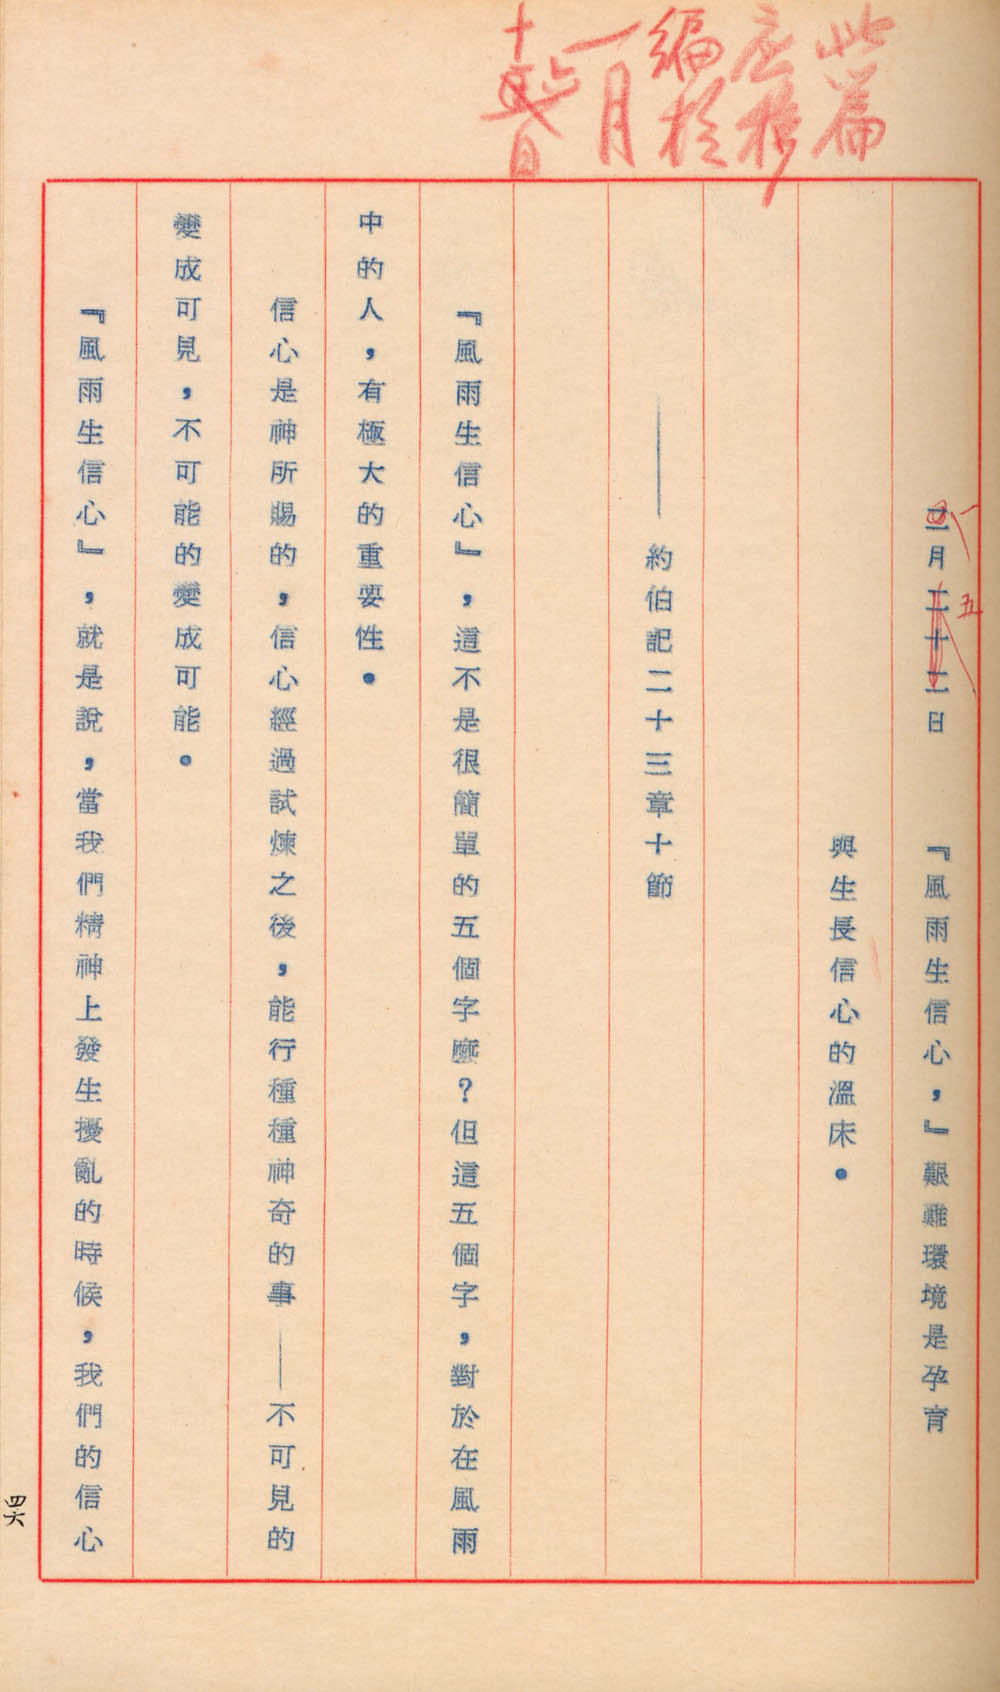 此篇
應移
編於
一月
十日
一
五
月 十 日 『風雨生信心，』艱難環境是孕育
與生長信心的溫床。
——約伯記二十三章十節
『風雨生信心』，這不是很簡單的五個字麼？但這五個字，對於在風雨
中的人，有極大的重要性。
信心是神所賜的，信心經過試煉之後，能行種種神奇的事——不可見的
變成可見，不可能的變成可能。
『風雨生信心』，就是說，當我們精神上發生擾亂的時候，我們的信心
四六